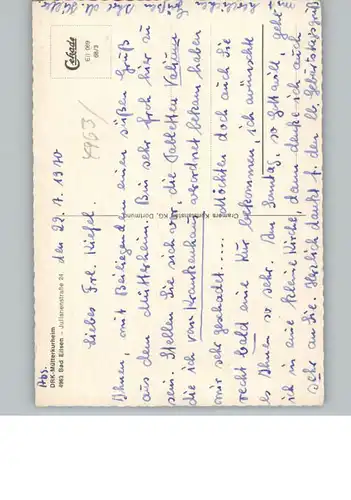 Abs.
DRK-Mütterkurheim
4963 Bad Eilsen – Julianenstraße 24
den 29. 7. 1970
Cekade
Eil 969
68/3
4963/
Cramers Kunstanstalt KG, Dortmund
Liebes Frl. Kiesel.
Ihnen, mit Beiliegendem einen süßen Gruß
aus dem Mütterheim. Bin sehr froh hier zu
sein. Stellen Sie sich vor, die Tabletten Valium
die ich vom Krankenhaus verordnet bekam haben
mir sehr geschadet..... Möchten doch auch Sie
recht bald eine Kur bekommen, ich wünschte
es Ihnen so sehr. Am Sonntag, so gottwill, geht
ich in eine kleine Kirche, dann denke ich auch
sehr an Sie. Herzlich dankt f. den lb. Geburtstagsgruß